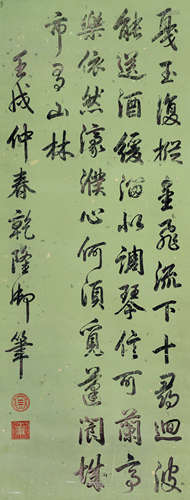 戛玉復摐金飛流下十尋迴波
能送酒緩溜似調琴信可蘭亭
樂依然濠濮心何須覓蓬閬城
市有山林
壬戌仲春乾隆御筆